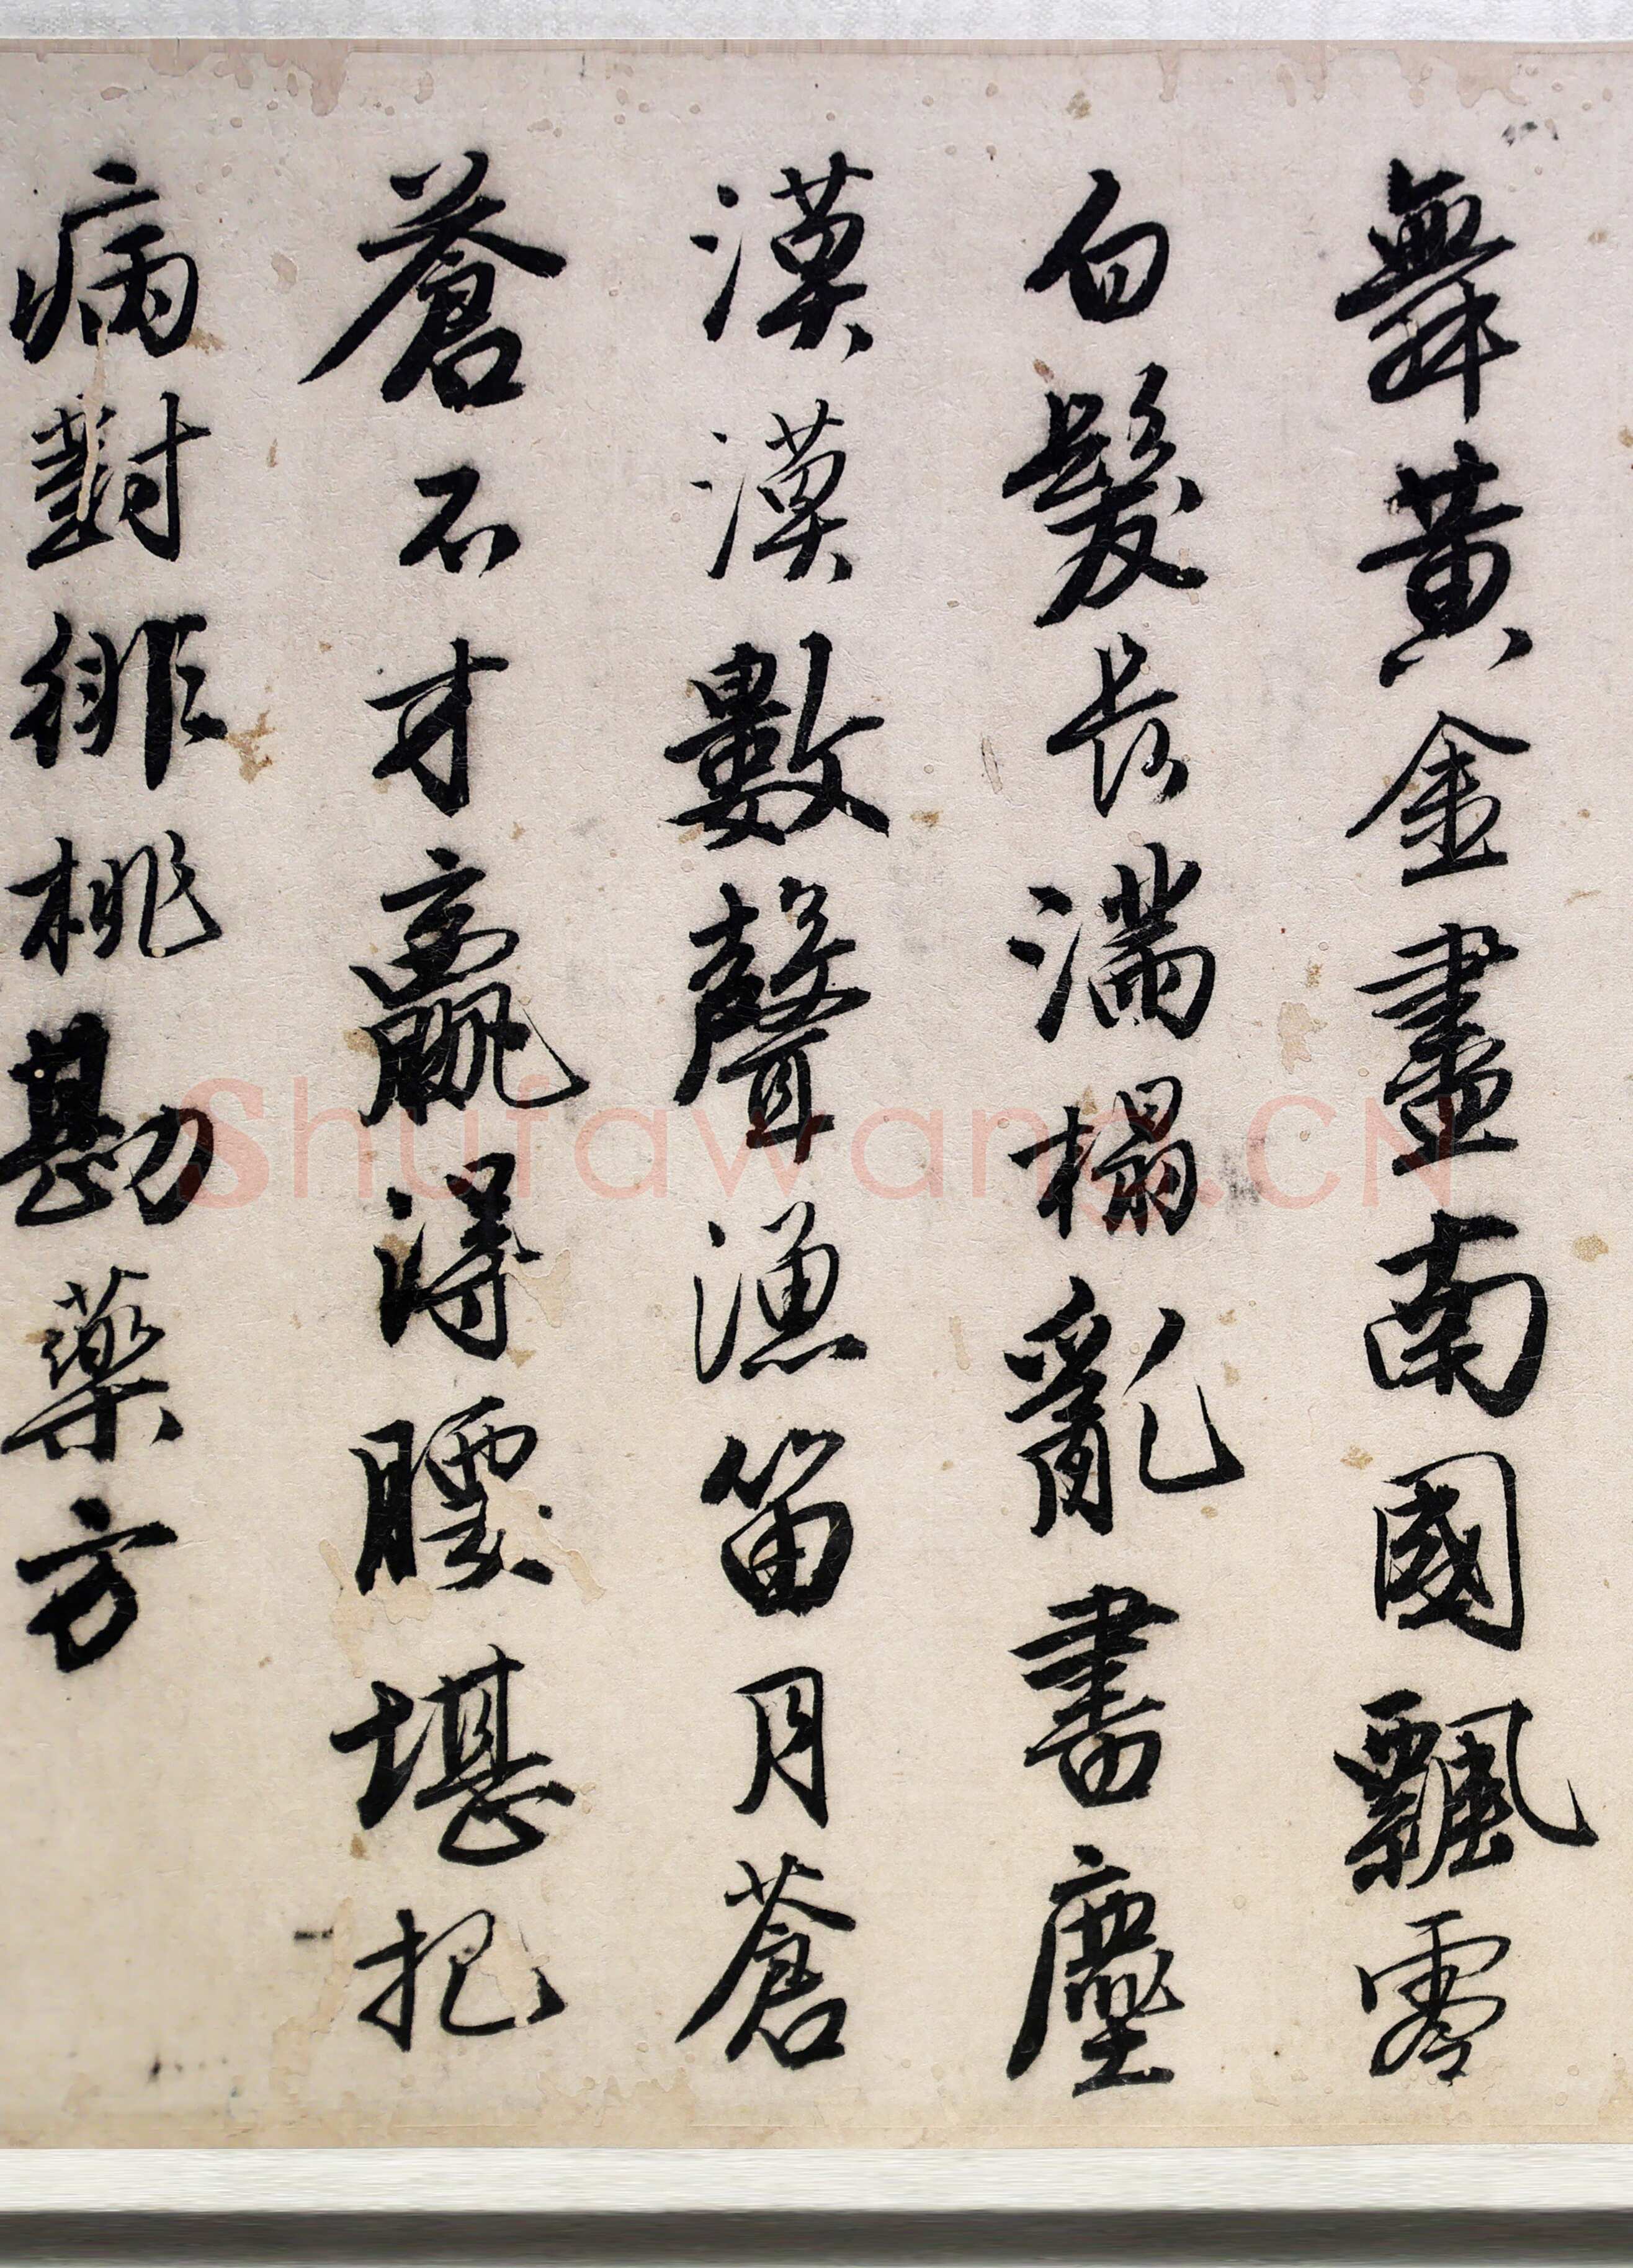 舞黃金盡南國飄零
白髮長滿榻亂書塵
漠漠數聲漁笛月蒼
蒼不才贏得腰堪把
病對緋桃勘藥方
Shufawang.CN